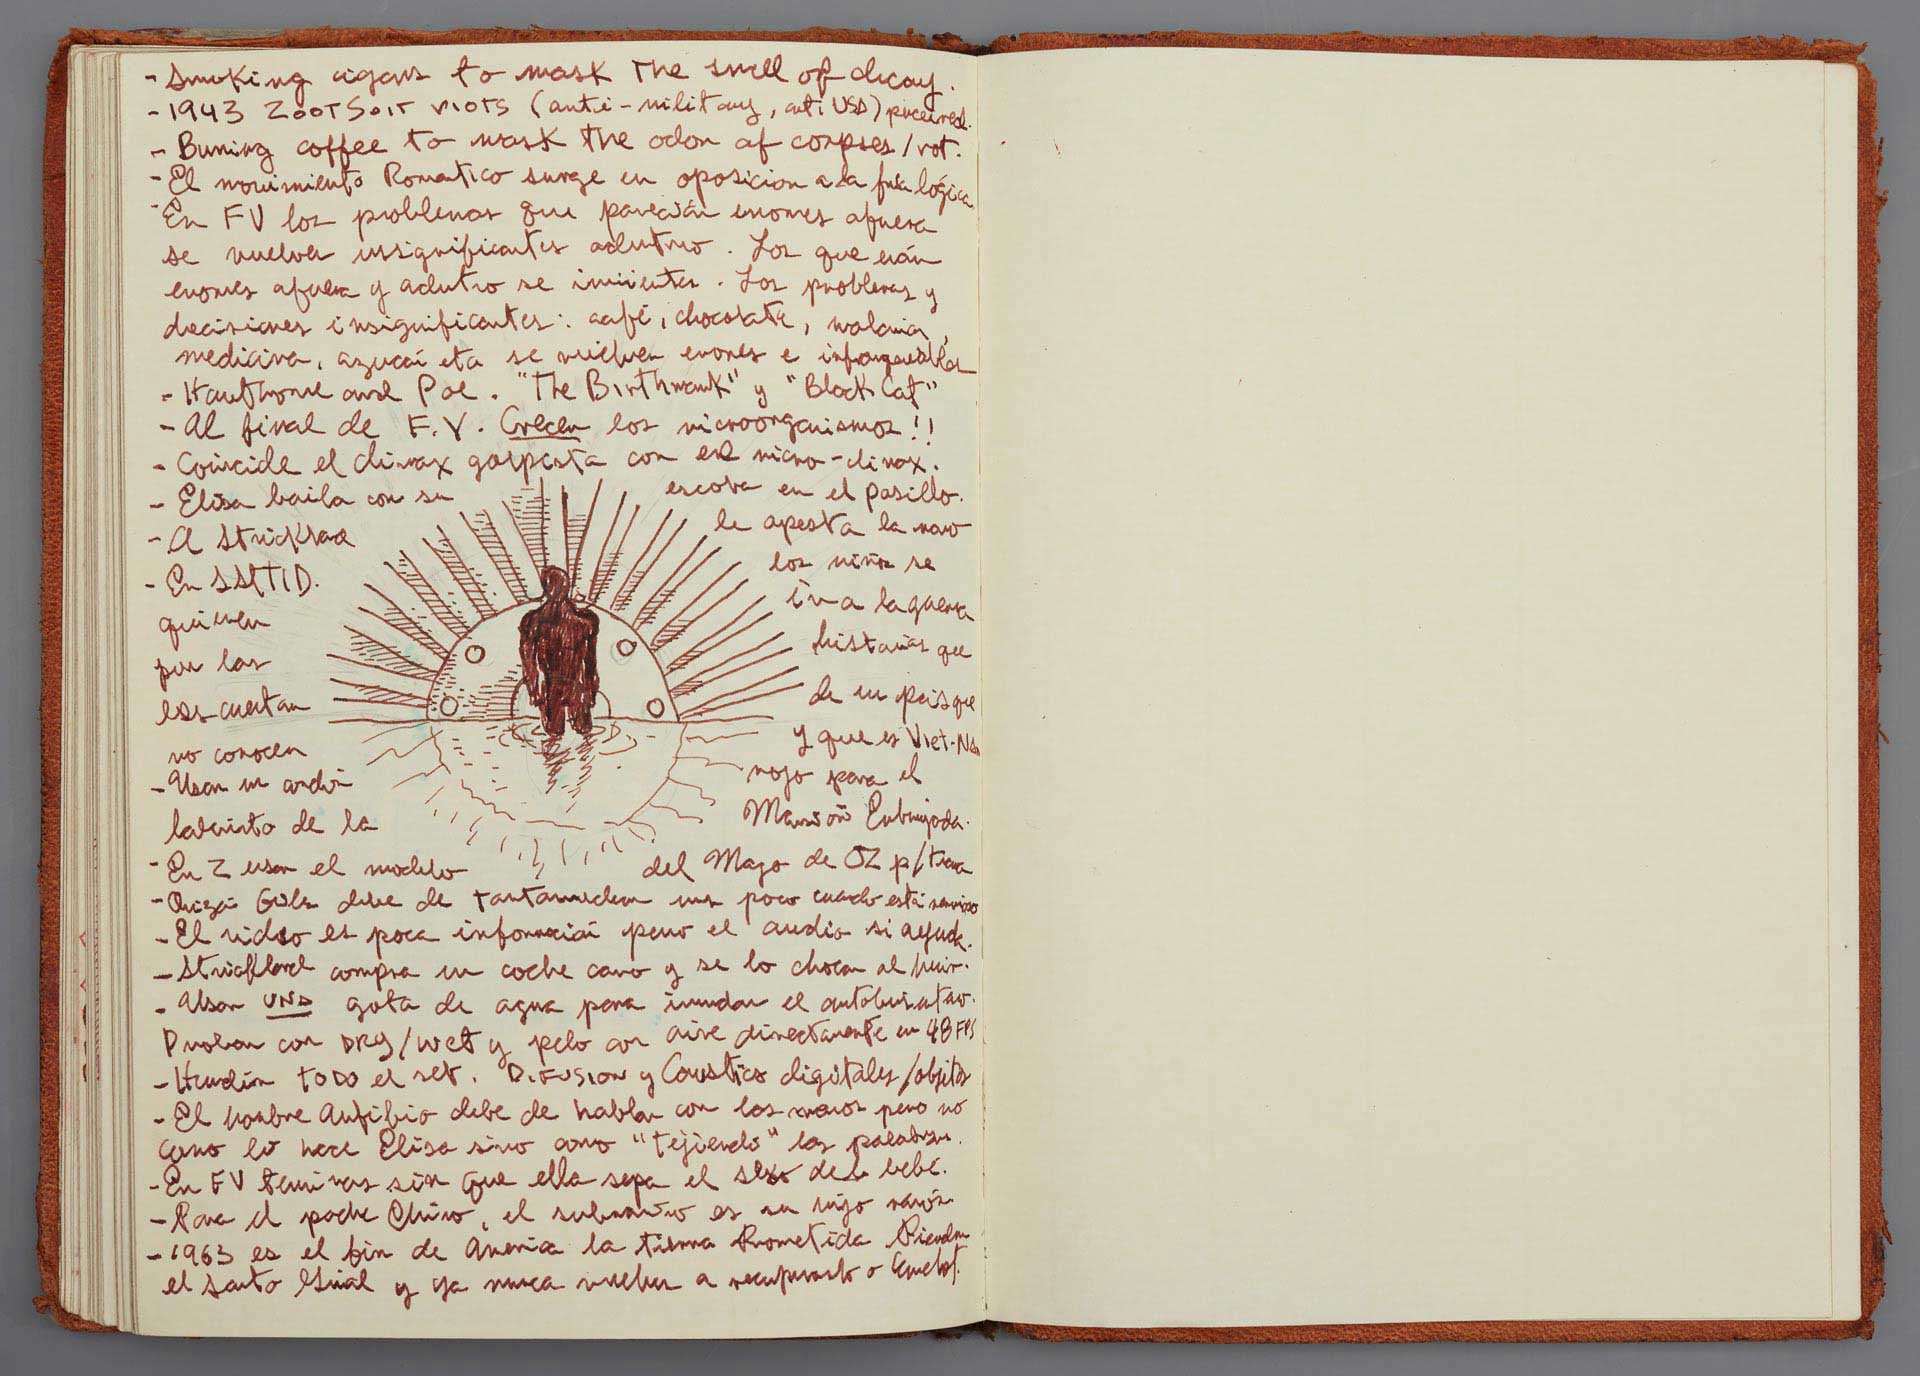 - Smoking cigars to mask the smell of decay.
- 1943 Zoot Suit riots (anti-military, anti USA)
- Burning coffee to mask the odor of corpses/rot.
- El movimiento Romantico surge en oposicion a la fria lógica.
En FV los problemas que parecían enormes afuera
se vuelven insignificantes adentro. Los que eran
enormes afuera y adentro se invierten. Los problemas y
decisiones insignificantes: café, chocolate,
medicina, azucar etc se vuelven enormes e infranqueables
- Hawthorne and Poe. "The Birthmark" y "Black Cat"
- Al final de F.V. Crecen los microorganismos!!
- Coincide el climax golpista con el micro-climax.
- Elisa baila con su escoba en el pasillo.
- A Strickland le apesta la mano
- En SSTTID. los niños se
quieren ir a la guerra
por las historias que
les cuentan de un pais que
no conocen y que es Viet-Nam
- Usar un cordon rojo para el
laberinto de la Mansión Embrujada.
- En Z usar el modelo del Mago de OZ p/
- Quizá Giles debe de tartamudear un poco cuando está nervioso
- El video es poca información pero el audio si ayuda.
- Strickland compra un coche caro y se lo chocan al huir.
- Usar UNA gota de agua para inundar el autobus
Probar con DRY/WET y pelo con aire directamente en 48 FPS
- Hundir TODO el set. DIFUSION y Caustics digitales/objetos
- El hombre Anfibio debe de hablar con las manos pero no
como lo hace Elisa sino como "tejiendo" las palabras.
- En FV terminas sin que ella sepa el sexo del bebé.
- Para el padre Chino, el submarino es su hijo varón.
- 1963 es el fin de America la tierra Prometida Pierden
el Santo Grial y ya nunca vuelven a recuperarlo o Camelot.